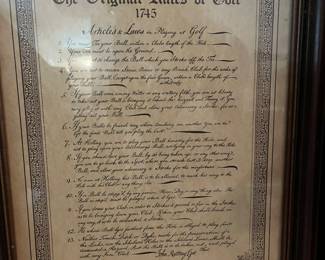 The Original Rules of Golf
1745
Articles & Laws in Playing at Golf
1. You must Tee your Ball, within a Clubs length of the Hole
2. Your Tee must be upon the Ground
3. You are not to change the Ball which you Strike off the Tee
4. You are not to remove Stones, Bones or any Break Club, for the sake of
playing your Ball, Except upon the fair Green, within a Clubs length of
5. If your Ball come among Water or any watery filth, you are at liberty
to take out your Ball & bringing it behind the hazard and Teeing it, you
may play it with any Club and allow your Adversary a Stroke for so
getting out your Ball
6. If your Balls be found any where touching one another, You are to
lift the first Ball, till you play the last
7. At Holling, you are to play your Ball honestly for the Hole, and
not to play upon your Adversary's Ball, not lying in your way to the Hole
8. If you should lose your Ball, by its being taken up, or any other way,
you are to go back to the Spot, where you struck last & drop another
Ball, and allow your adversary a Stroke for the misfortune
9. No man at Holling his Ball, is to be allowed, to mark his way to the
Hole with his Club or any thing else
10. If a Ball be stopp'd by any person, Horse, Dog or any thing else, The
Ball so stop'd must be played where it lyes
11. If you draw your Club in order to Strike & proceed so far in the Stroke
as to be bringing down your Club; If then your Club shall break, in
any way, it is to be accounted a Stroke
12. He whose Ball lyes farthest from the Hole is obliged to play first
13. Neither Trench, Ditch or Dyke, made for the preservation of
the Links, nor the Scholars Holes or the Soldiers Lines, shall be
accounted a Hazard, But the Ball is to be taken out, and play'd
with any Iron Club
John Rattray, Cpt